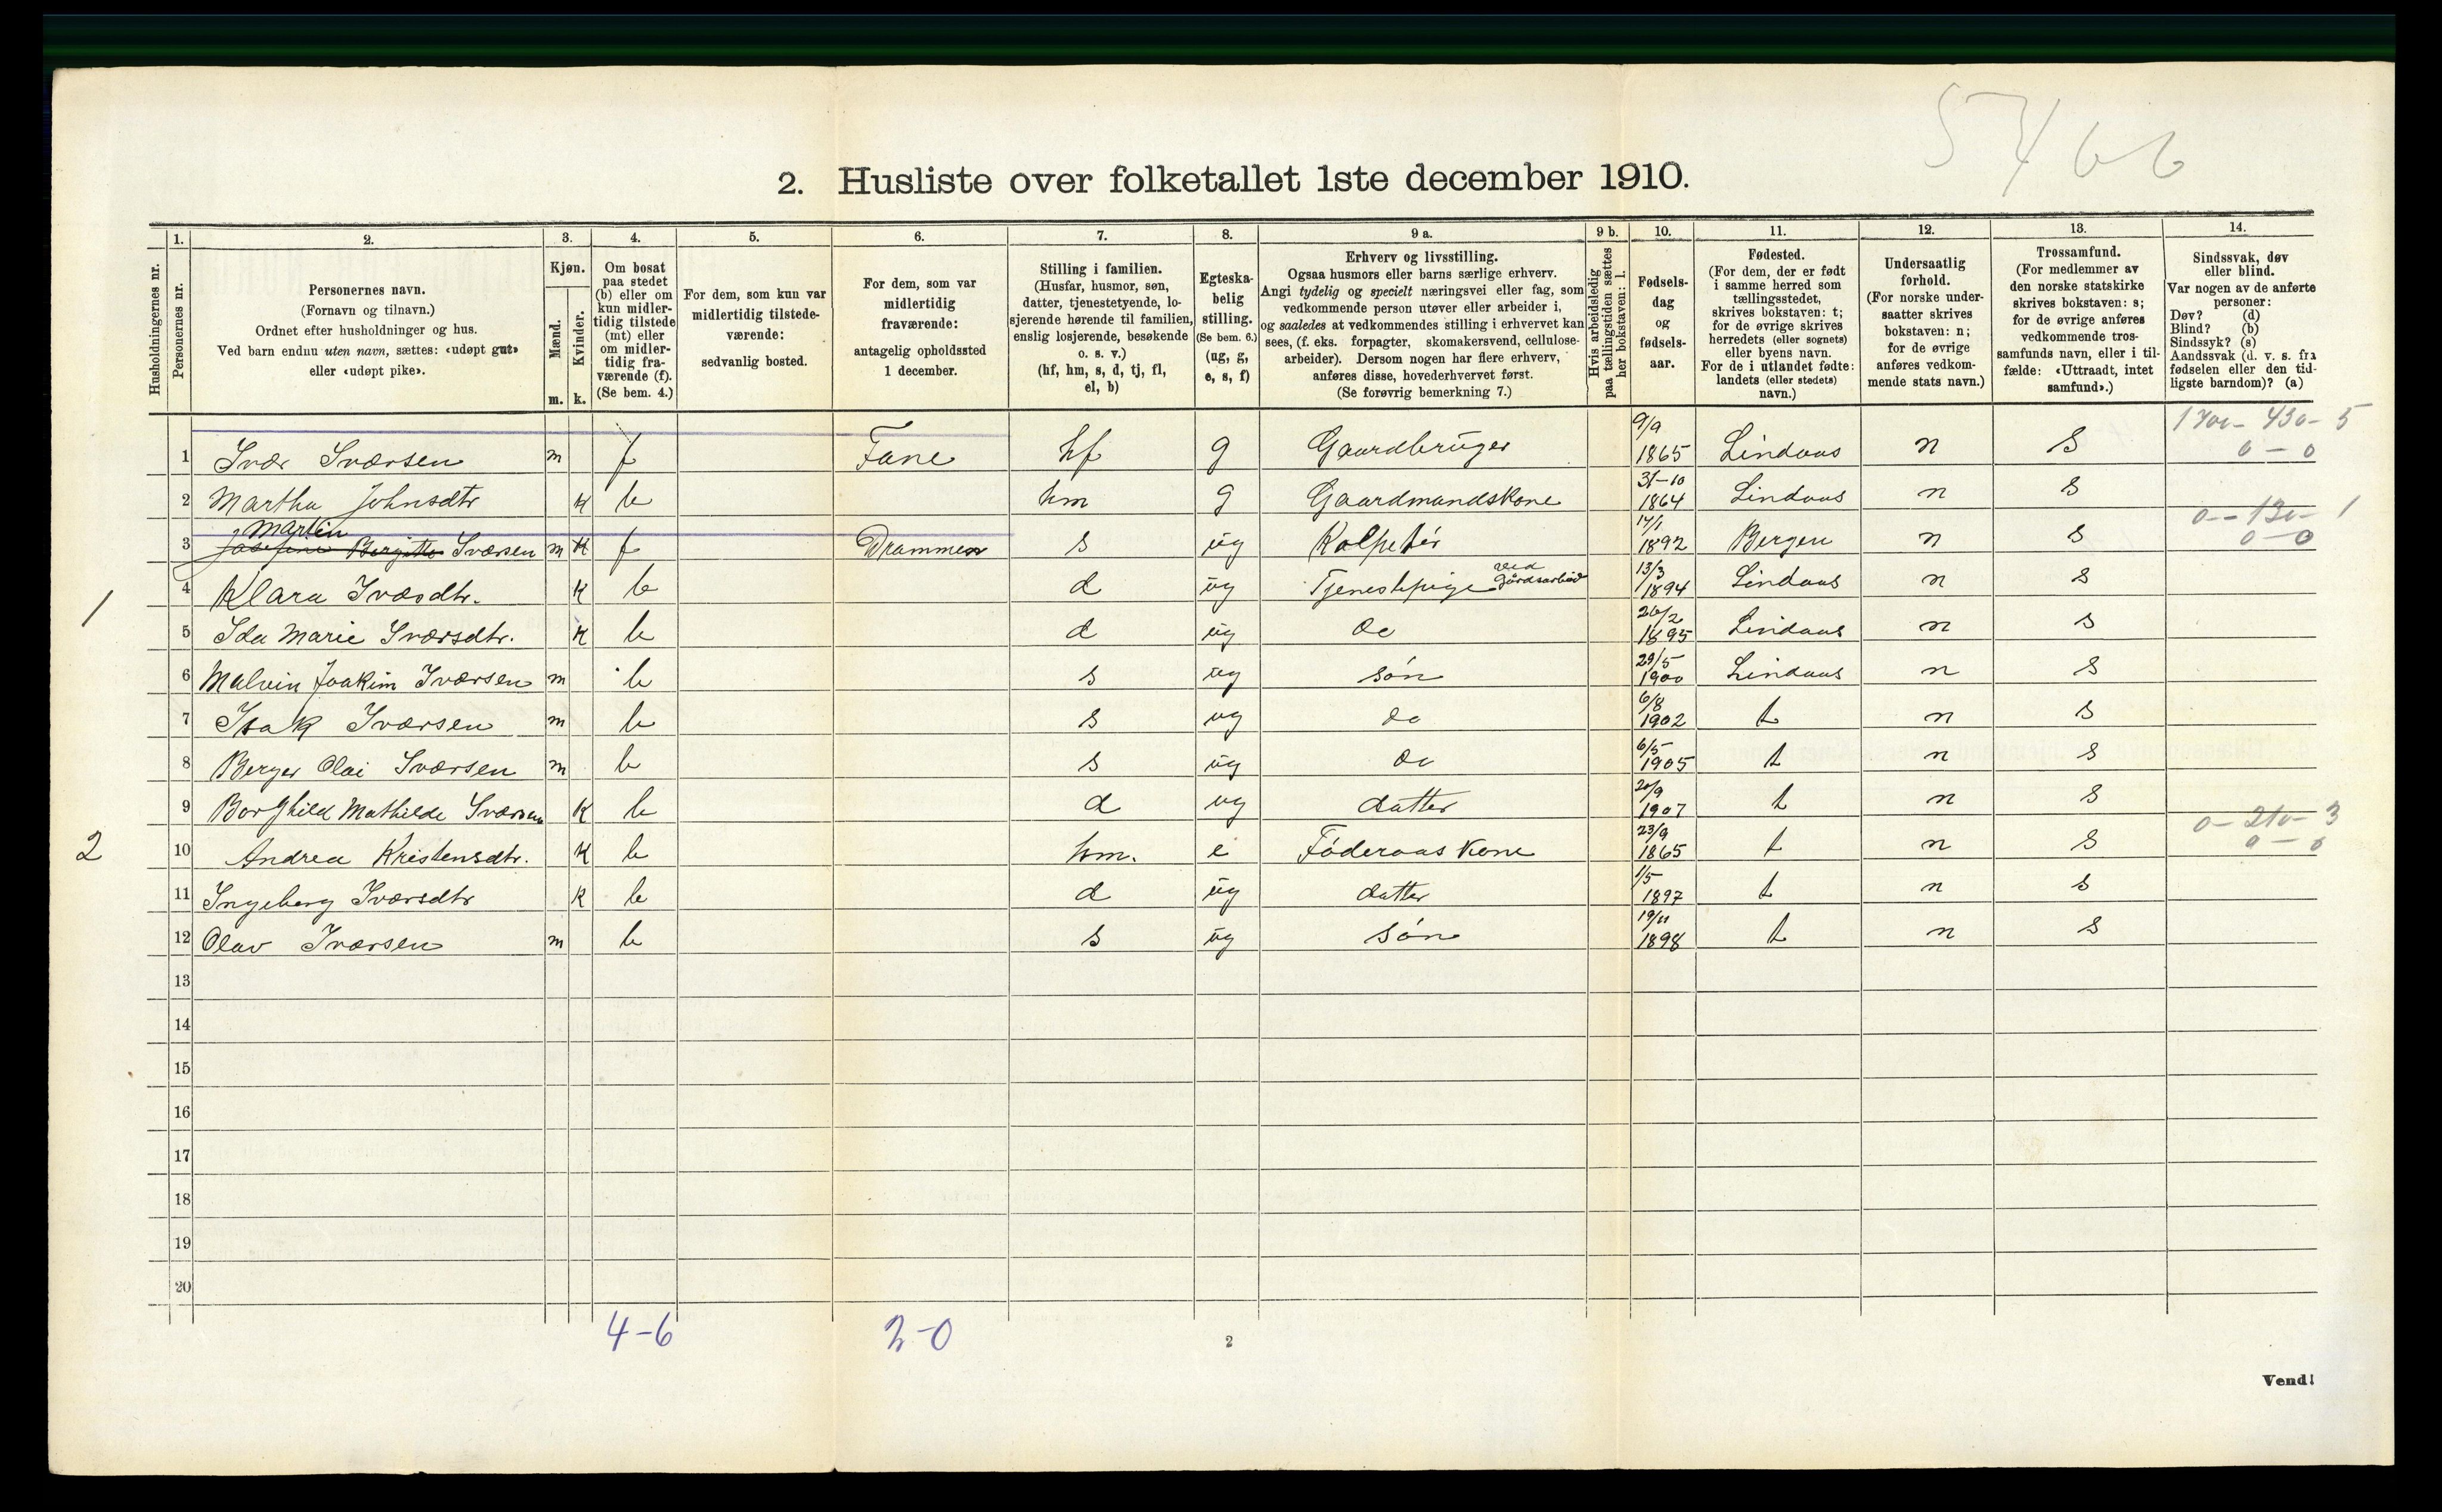 5466
2. Husliste over folketallet 1ste december 1910.
Husholdningernes nr.
1. Personernes nr.
2. Personernes navn. (Fornavn og tilnavn.) Ordnet efter husholdninger og hus. Ved barn endnu uten navn, sættes: «udøpt gut» eller «udøpt pike».
3. Kjøn. Mænd. m. Kvinder. k.
4. Om bosat paa stedet (b) eller om kun midler-tidig tilstede (mt) eller om midler-tidig fra-værende (f). (Se bem. 4.)
5. For dem, som kun var midlertidig tilstede-værende: sedvanlig bosted.
6. For dem, som var midlertidig fraværende: antagelig opholdssted 1 december.
7. Stilling i familien. (Husfar, husmor, søn, datter, tjenestetyende, lo-sjerende hørende til familien, enslig losjerende, besøkende o. s. v.) (hf, hm, s, d, tj, fl, el, b)
8. Egteska-belig stilling. (Se bem. 6.) (ug, g, e, s, f)
9 a. Erhverv og livsstilling. Ogsaa husmors eller barns særlige erhverv. Angi tydelig og specielt næringsvei eller fag, som vedkommende person utøver eller arbeider i, og saaledes at vedkommendes stilling i erhvervet kan sees, (f. eks. forpagter, skomakersvend, cellulose-arbeider). Dersom nogen har flere erhverv, anføres disse, hovederhvervet først. (Se forøvrig bemerkning 7.)
9 b. Hvis arbeidsledig paa tællingstiden sættes her bokstaven: l.
10. Fødsels-dag og fødsels-aar.
11. Fødested. (For dem, der er født i samme herred som tællingsstedet, skrives bokstaven: t; for de øvrige skrives herredets (eller sognets) eller byens navn. For de i utlandet fødte: landets (eller stedets) navn.)
12. Undersaatlig forhold. (For norske under-saatter skrives bokstaven: n; for de øvrige anføres vedkom-mende stats navn.)
13. Trossamfund. (For medlemmer av den norske statskirke skrives bokstaven: s; for de øvrige anføres vedkommende tros-samfunds navn, eller i til-fælde: «Uttraadt, intet samfund».)
14. Sindssvak, døv eller blind. Var nogen av de anførte personer: Døv? (d) Blind? (b) Sindssyk? (s) Aandssvak (d. v. s. fra fødselen eller den tid-ligste barndom)? (a)
1 Ivær Iværsen m f Fane hf g Gaardbruger 9/9 1865 Lindaas n s
0 — 0
2 Martha Johnsdtr k b hm g Gaardmandskone 31-10 1864 Lindaas n s
3 Josefine Bergitte Martin Iværsen m k f Drammen s ug 14/1 1892 Bergen n s 0 - 130 - 1
0 - 0
1
4 Klara Iværsdtr. k b d ug Tjenestepige ved Gårdsarbeid 13/3 1894 Lindaas n s
5 Ida Marie Iværsdtr. k b d ug do 26/2 1895 Lindaas n s
6 Malvin Joakim Iværsen m b s ug søn 29/5 1900 Lindaas n s
7 Isak Iværsen m b s ug do 6/8 1902 t n s
8 Berger Olai Iværsen m b s ug do 6/5 1905 t n s
9 Borghild Mathilde Iværsen k b d ug datter 20/9 1907 t n s
2
10 Andrea Kristensdtr. k b hm. e Föderaas kone 23/9 1865 t n s 0 - 210 - 3
0 - 0
11 Ingeborg Iværsdtr k b d ug datter 1/5 1897 t n s
12 Olav Iværsen m b s ug søn 19/11 1898 t n s
13
14
15
16
17
18
19
20
4-6 2-0
2
Vend!